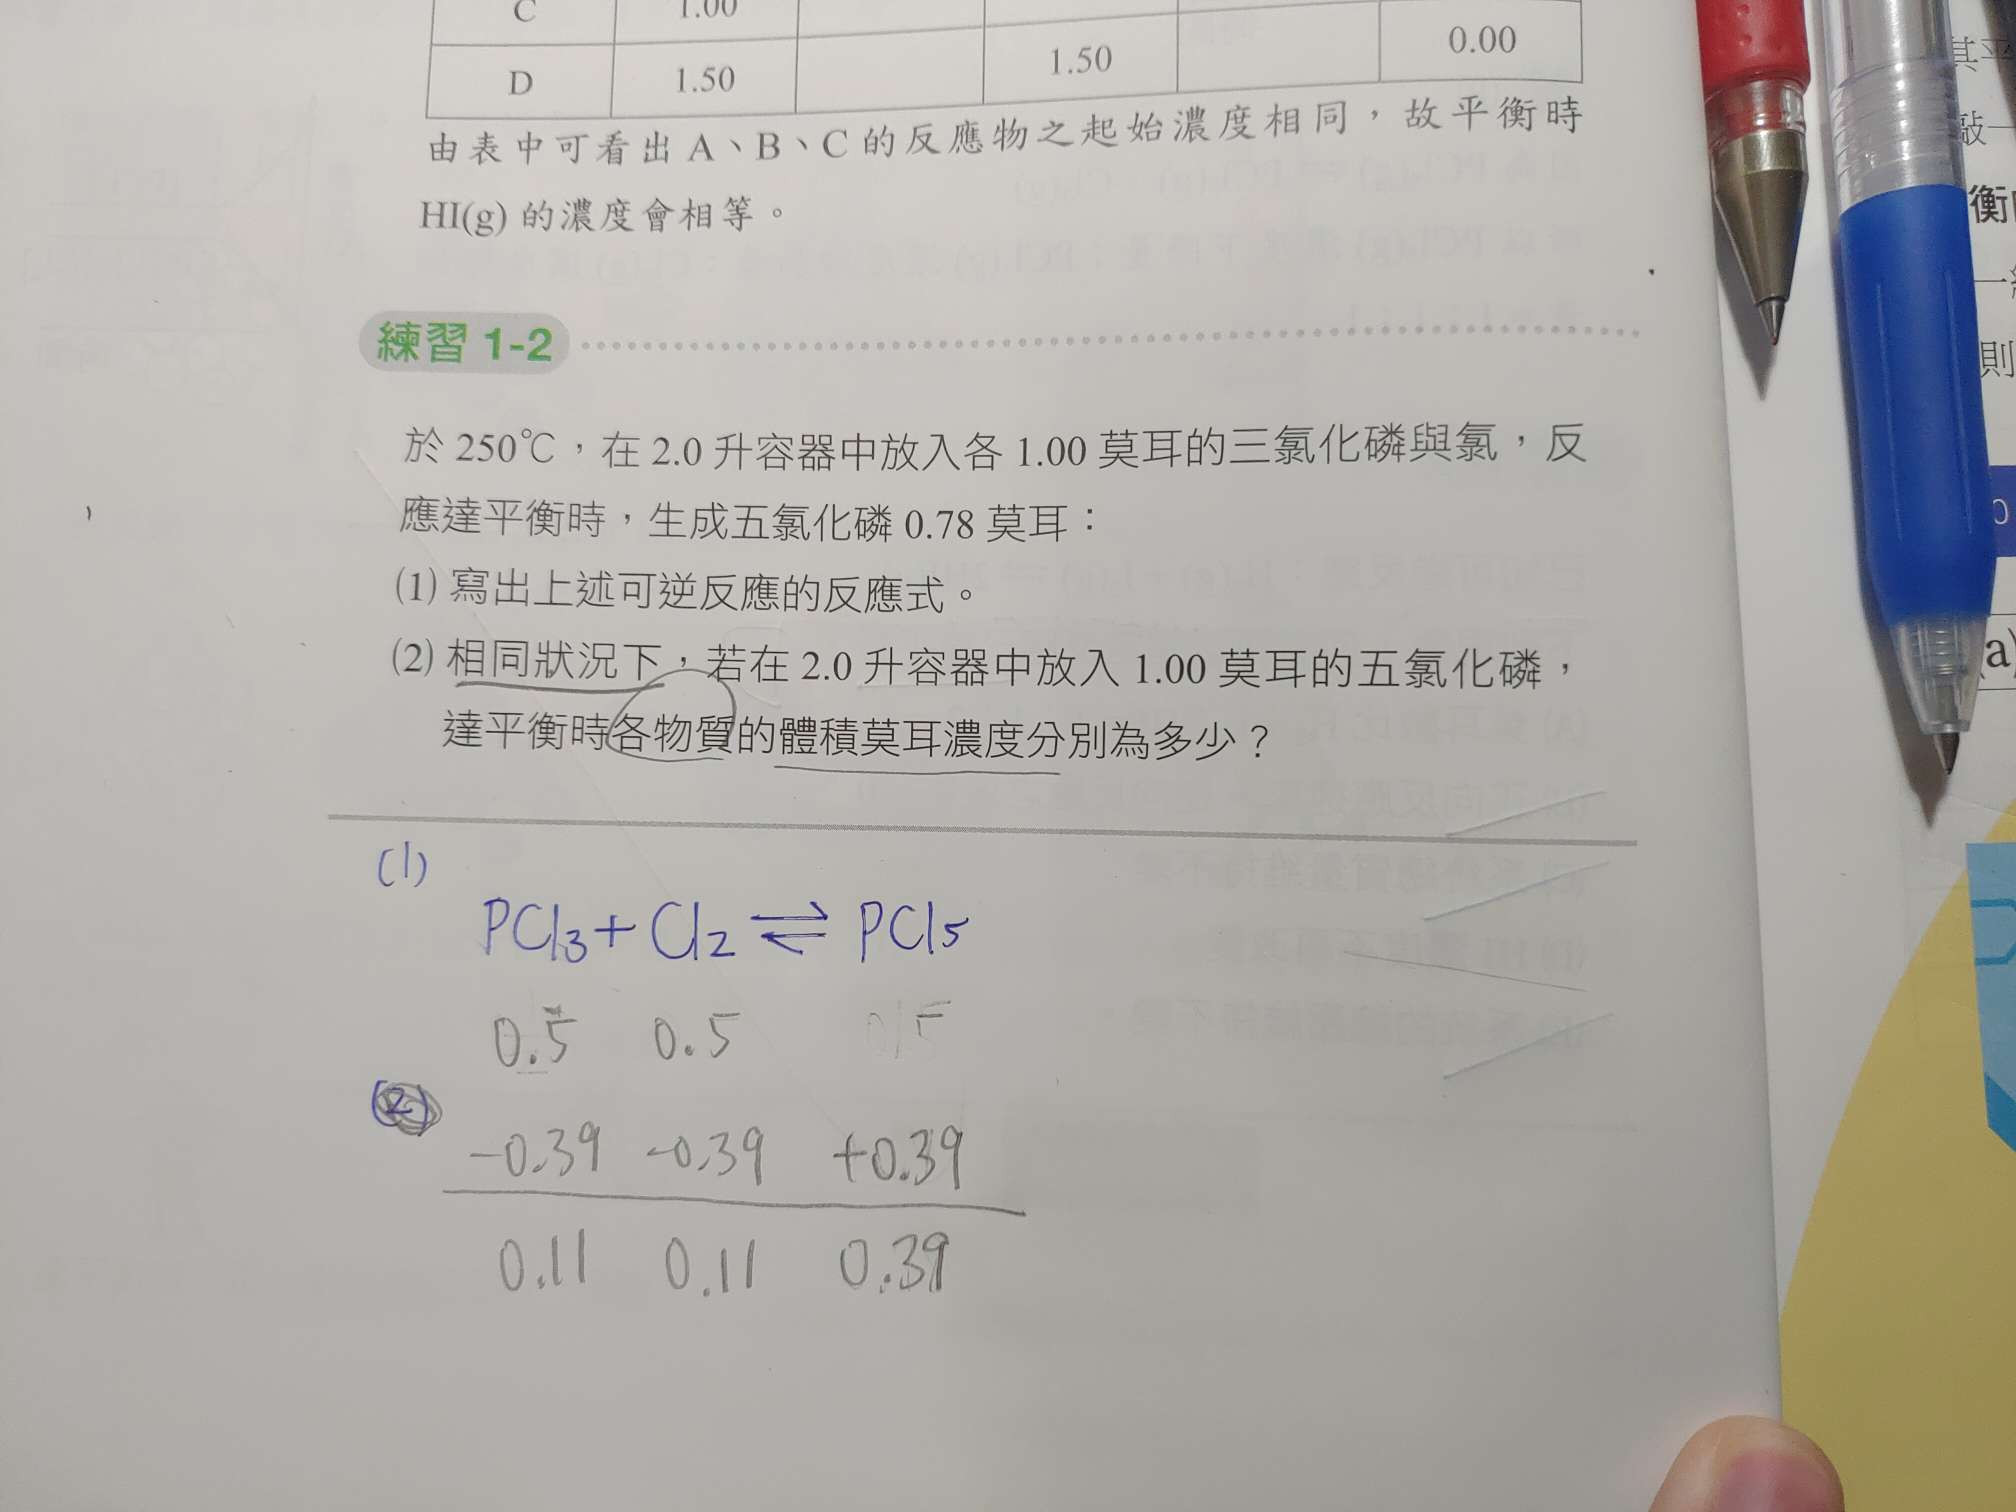 C 1.00
D 1.50 1.50 0.00
由表中可看出 A、B、C 的反應物之起始濃度相同，故平衡時
HI(g) 的濃度會相等。
練習 1-2
於 250℃，在 2.0 升容器中放入各 1.00 莫耳的三氯化磷與氯，反
應達平衡時，生成五氯化磷 0.78 莫耳：
(1) 寫出上述可逆反應的反應式。
(2) 相同狀況下，若在 2.0 升容器中放入 1.00 莫耳的五氯化磷，
達平衡時各物質的體積莫耳濃度分別為多少？
(1)
PCl3 + Cl2 ⇌ PCl5
0.5 0.5
(2)
-0.39 -0.39 +0.39
0.11 0.11 0.39
衡
則
(a)